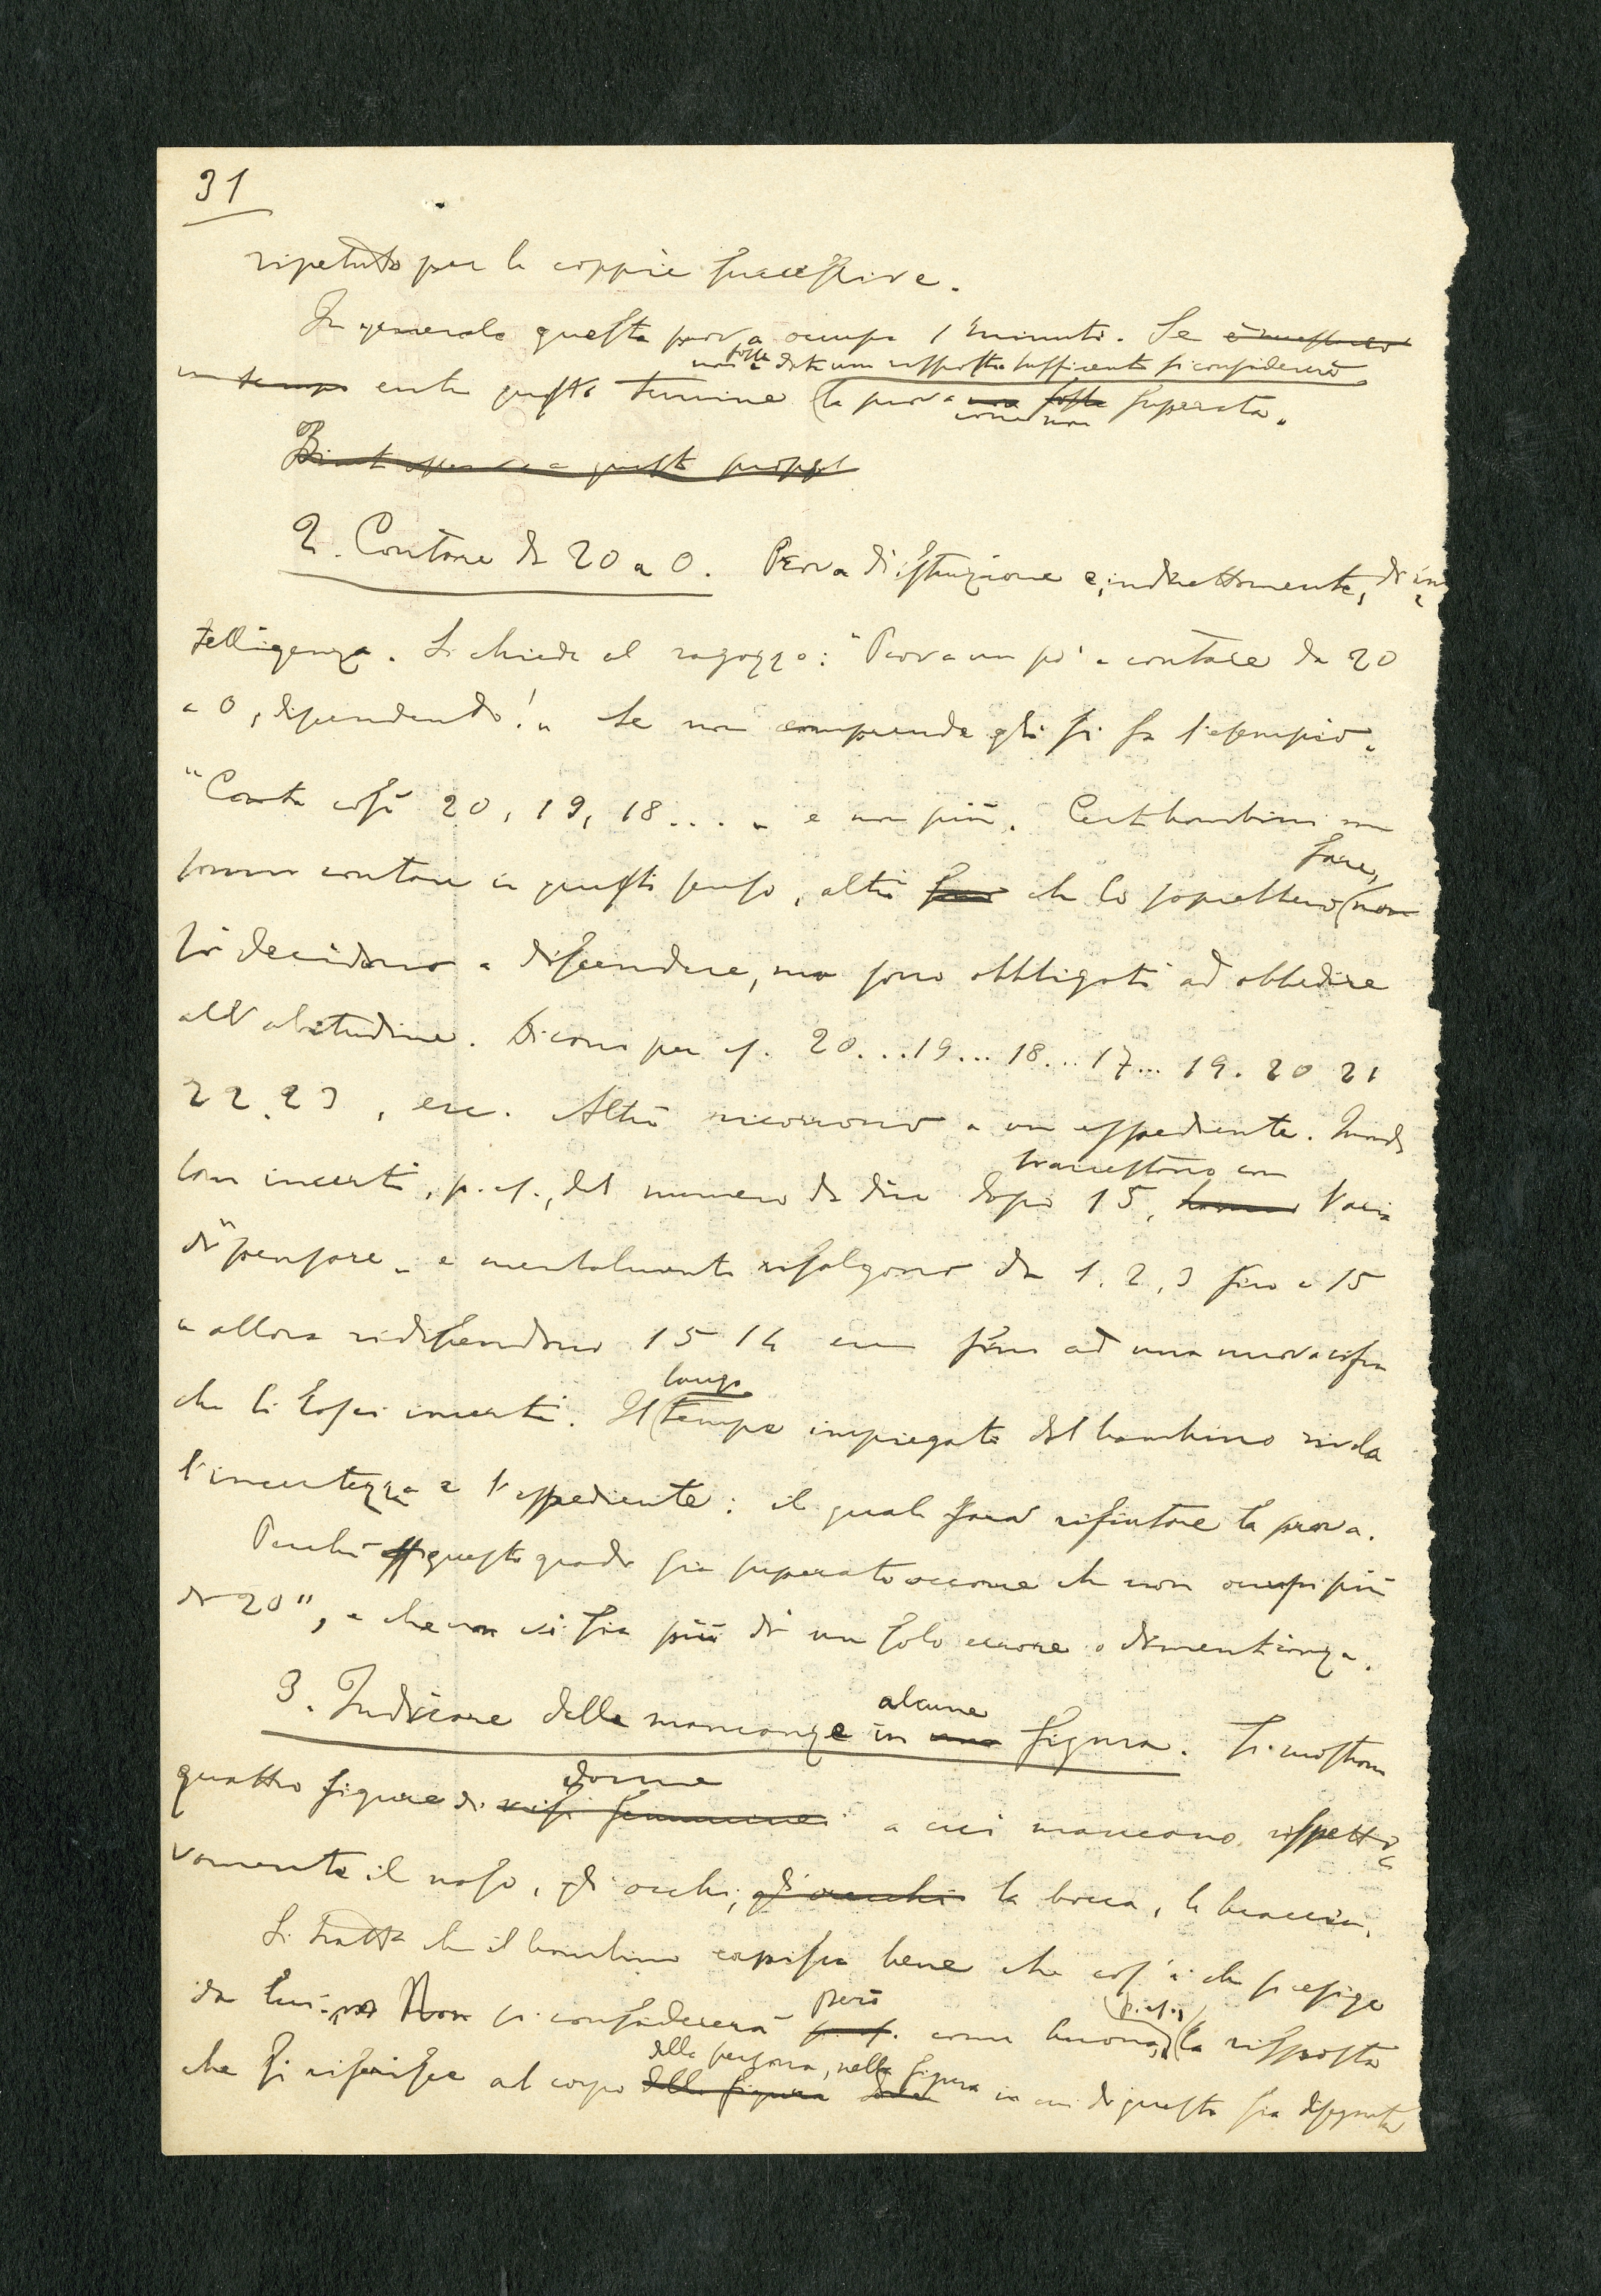 31
ripetuto per le coppie successive.
In generale questa prova occupa 1 minuto. Se
non fosse data una risposta sufficiente si considererà
un tempo entro questo termine (la prova non fosse superata.
come non
Binet a questo
2. Contare da 20 a 0. Prova di istruzione e, indirettamente, di in
telligenza. Si chiede al ragazzo: "Prova un po' a contare da 20
a 0, discendendo!" Se non comprende gli si fa l'esempio.
"Conta così 20, 19, 18...." e non più. Certi bambini non
fare,
sanno contare in questo senso, altri che lo saprebbero (non
si decidono a discendere, ma sono obbligati ad obbedire
all'abitudine. Dicono per es. 20...19...18...17... 19. 20 21
22.23, ecc. Altri ricorrono a un espediente. Quando
trarrestano con
son incerti, p. es., del numero da dire dopo 15, l'aria
di "pensare" e mentalmente risalgono da 1. 2, 3 fino a 15
e allora ridiscendono 15 14 ecc fino ad una nuova cifra
che li lasci incerti. Il (tempo impiegato dal bambino rivela
lungo
l'incertezza e l'espediente: il quale farà rifiutare la prova.
Perchè questo grado sia superato occorre che non occupi più
di 20", e che non vi sia più di un solo errore o dimenticanza.
alcune
3. Indicare delle mancanze in una figura. Si mostrano
donne
quattro figure di visi femminei a cui mancano rispetti
vamente il naso, gli occhi, gli orecchi la bocca, le braccia.
Si tratta che il bambino capisca bene che cos'è che si esige
però (p. es.,
da lui. Non si considererà p. es. come buona, (la risposta
della persona, nella figura
che si riferisce al corpo della figura dove in cui di questo sia disegnata